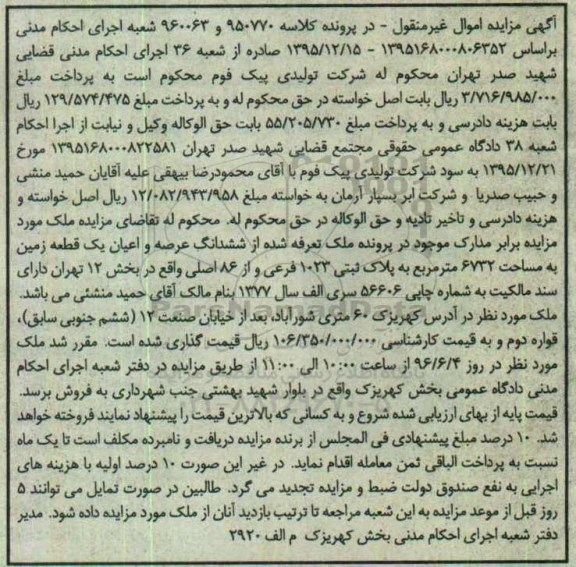 آگهی مزایده اموال غیرمنقول - در پرونده کلاسه ۹۵۰۷۷۰ و ۹۶۰۰۶۳ شعبه اجرای احکام مدنی
براساس ۱۳۹۵۱۶۸۰۰۰۸۰۶۳۵۲ - ۱۳۹۵/۱۲/۱۵ صادره از شعبه ۳۶ اجرای احکام مدنی قضایی
شهید صدر تهران محکوم له شرکت تولیدی پیک فوم محکوم است به پرداخت مبلغ
۳/۷۱۶/۹۸۵/۰۰۰ ریال بابت اصل خواسته در حق محکوم له و به پرداخت مبلغ ۱۲۹/۵۷۴/۴۷۵ ریال
بابت هزینه دادرسی و به پرداخت مبلغ ۵۵/۲۰۵/۷۳۰ بابت حق الوکاله وکیل و نیابت از اجرا احکام
شعبه ۳۸ دادگاه عمومی حقوقی مجتمع قضایی شهید صدر تهران ۱۳۹۵۱۶۸۰۰۰۸۲۲۵۸۱ مورخ
۱۳۹۵/۱۲/۲۱ به سود شرکت تولیدی پیک فوم با آقای محمودرضا بیهقی علیه آقایان حمید منشی
و حبیب صدریا و شرکت ابر بسپار آرمان به خواسته مبلغ ۱۲/۰۸۲/۹۴۳/۹۵۸ ریال اصل خواسته و
هزینه دادرسی و تاخیر تادیه و حق الوکاله در حق محکوم له. محکوم له تقاضای مزایده ملک مورد
مزایده برابر مدارک موجود در پرونده ملک تعرفه شده از ششدانگ عرصه و اعیان یک قطعه زمین
به مساحت ۶۷۳۲ مترمربع به پلاک ثبتی ۱۰۲۳ فرعی و از ۸۶ اصلی واقع در بخش ۱۲ تهران دارای
سند مالکیت به شماره چاپی ۵۶۶۰۶ سری الف سال ۱۳۷۷ بنام مالک آقای حمید منشئی می باشد.
ملک مورد نظر در آدرس کهریزک ۶۰ متری شورآباد، بعد از خیابان صنعت ۱۲ (ششم جنوبی سابق)،
قواره دوم و به قیمت کارشناسی ۱۰۶/۳۵۰/۰۰۰/۰۰۰ ریال قیمت گذاری شده است. مقرر شد ملک
مورد نظر در روز ۹۶/۶/۴ از ساعت ۱۰:۰۰ الی ۱۱:۰۰ از طریق مزایده در دفتر شعبه اجرای احکام
مدنی دادگاه عمومی بخش کهریزک واقع در بلوار شهید بهشتی جنب شهرداری به فروش برسد.
قیمت پایه از بهای ارزیابی شده شروع و به کسانی که بالاترین قیمت را پیشنهاد نمایند فروخته خواهد
شد. ۱۰ درصد مبلغ پیشنهادی فی المجلس از برنده مزایده دریافت و نامبرده مکلف است تا یک ماه
نسبت به پرداخت الباقی ثمن معامله اقدام نماید. در غیر این صورت ۱۰ درصد اولیه با هزینه های
اجرایی به نفع صندوق دولت ضبط و مزایده تجدید می گرد. طالبین در صورت تمایل می توانند ۵
روز قبل از موعد مزایده به این شعبه مراجعه تا ترتیب بازدید آنان از ملک مورد مزایده داده شود. مدیر
دفتر شعبه اجرای احکام مدنی بخش کهریزک م الف ۲۹۲۰